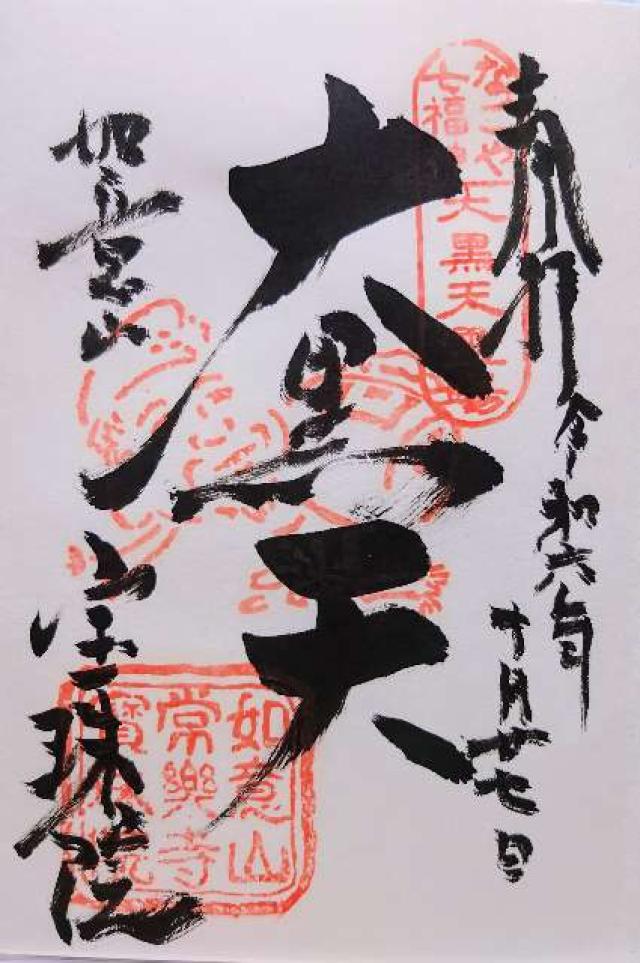 奉拝 令和六年
十月廿七日
大黒天
如意山
宝珠院
なごや
七福神 大黒天霊場
如意山
常樂寺
寶珠院